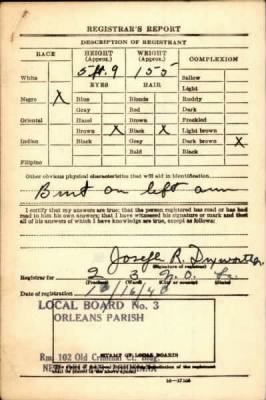 REGISTRAR'S REPORT
DESCRIPTION OF REGISTRANT
RACE HEIGHT (Approx.) WEIGHT (Approx.) COMPLEXION
White 5 ft. 9 155 Sallow
EYES HAIR Light
Negro X Blue Blonde Ruddy
Gray Red Dark
Oriental Hazel Brown Freckled
Brown X Black X Light brown
Indian Black Gray Dark brown X
Bald Black
Filipino
Other obvious physical characteristics that will aid in identification
Burnt on left arm
I certify that my answers are true; that the person registered has read or has had
read to him his own answers; that I have witnessed his signature or mark and that
all of his answers of which I have knowledge are true, except as follows:
Joseph R.
(Signature of registrar)
Registrar for 2 3 N.O. La.
(Precinct) (Ward) (City or county) (State)
Date of registration
LOCAL BOARD No. 3
ORLEANS PARISH
Rm. 102 Old Criminal Ct. Bldg.
(STAMP OF LOCAL BOARD)
NEW